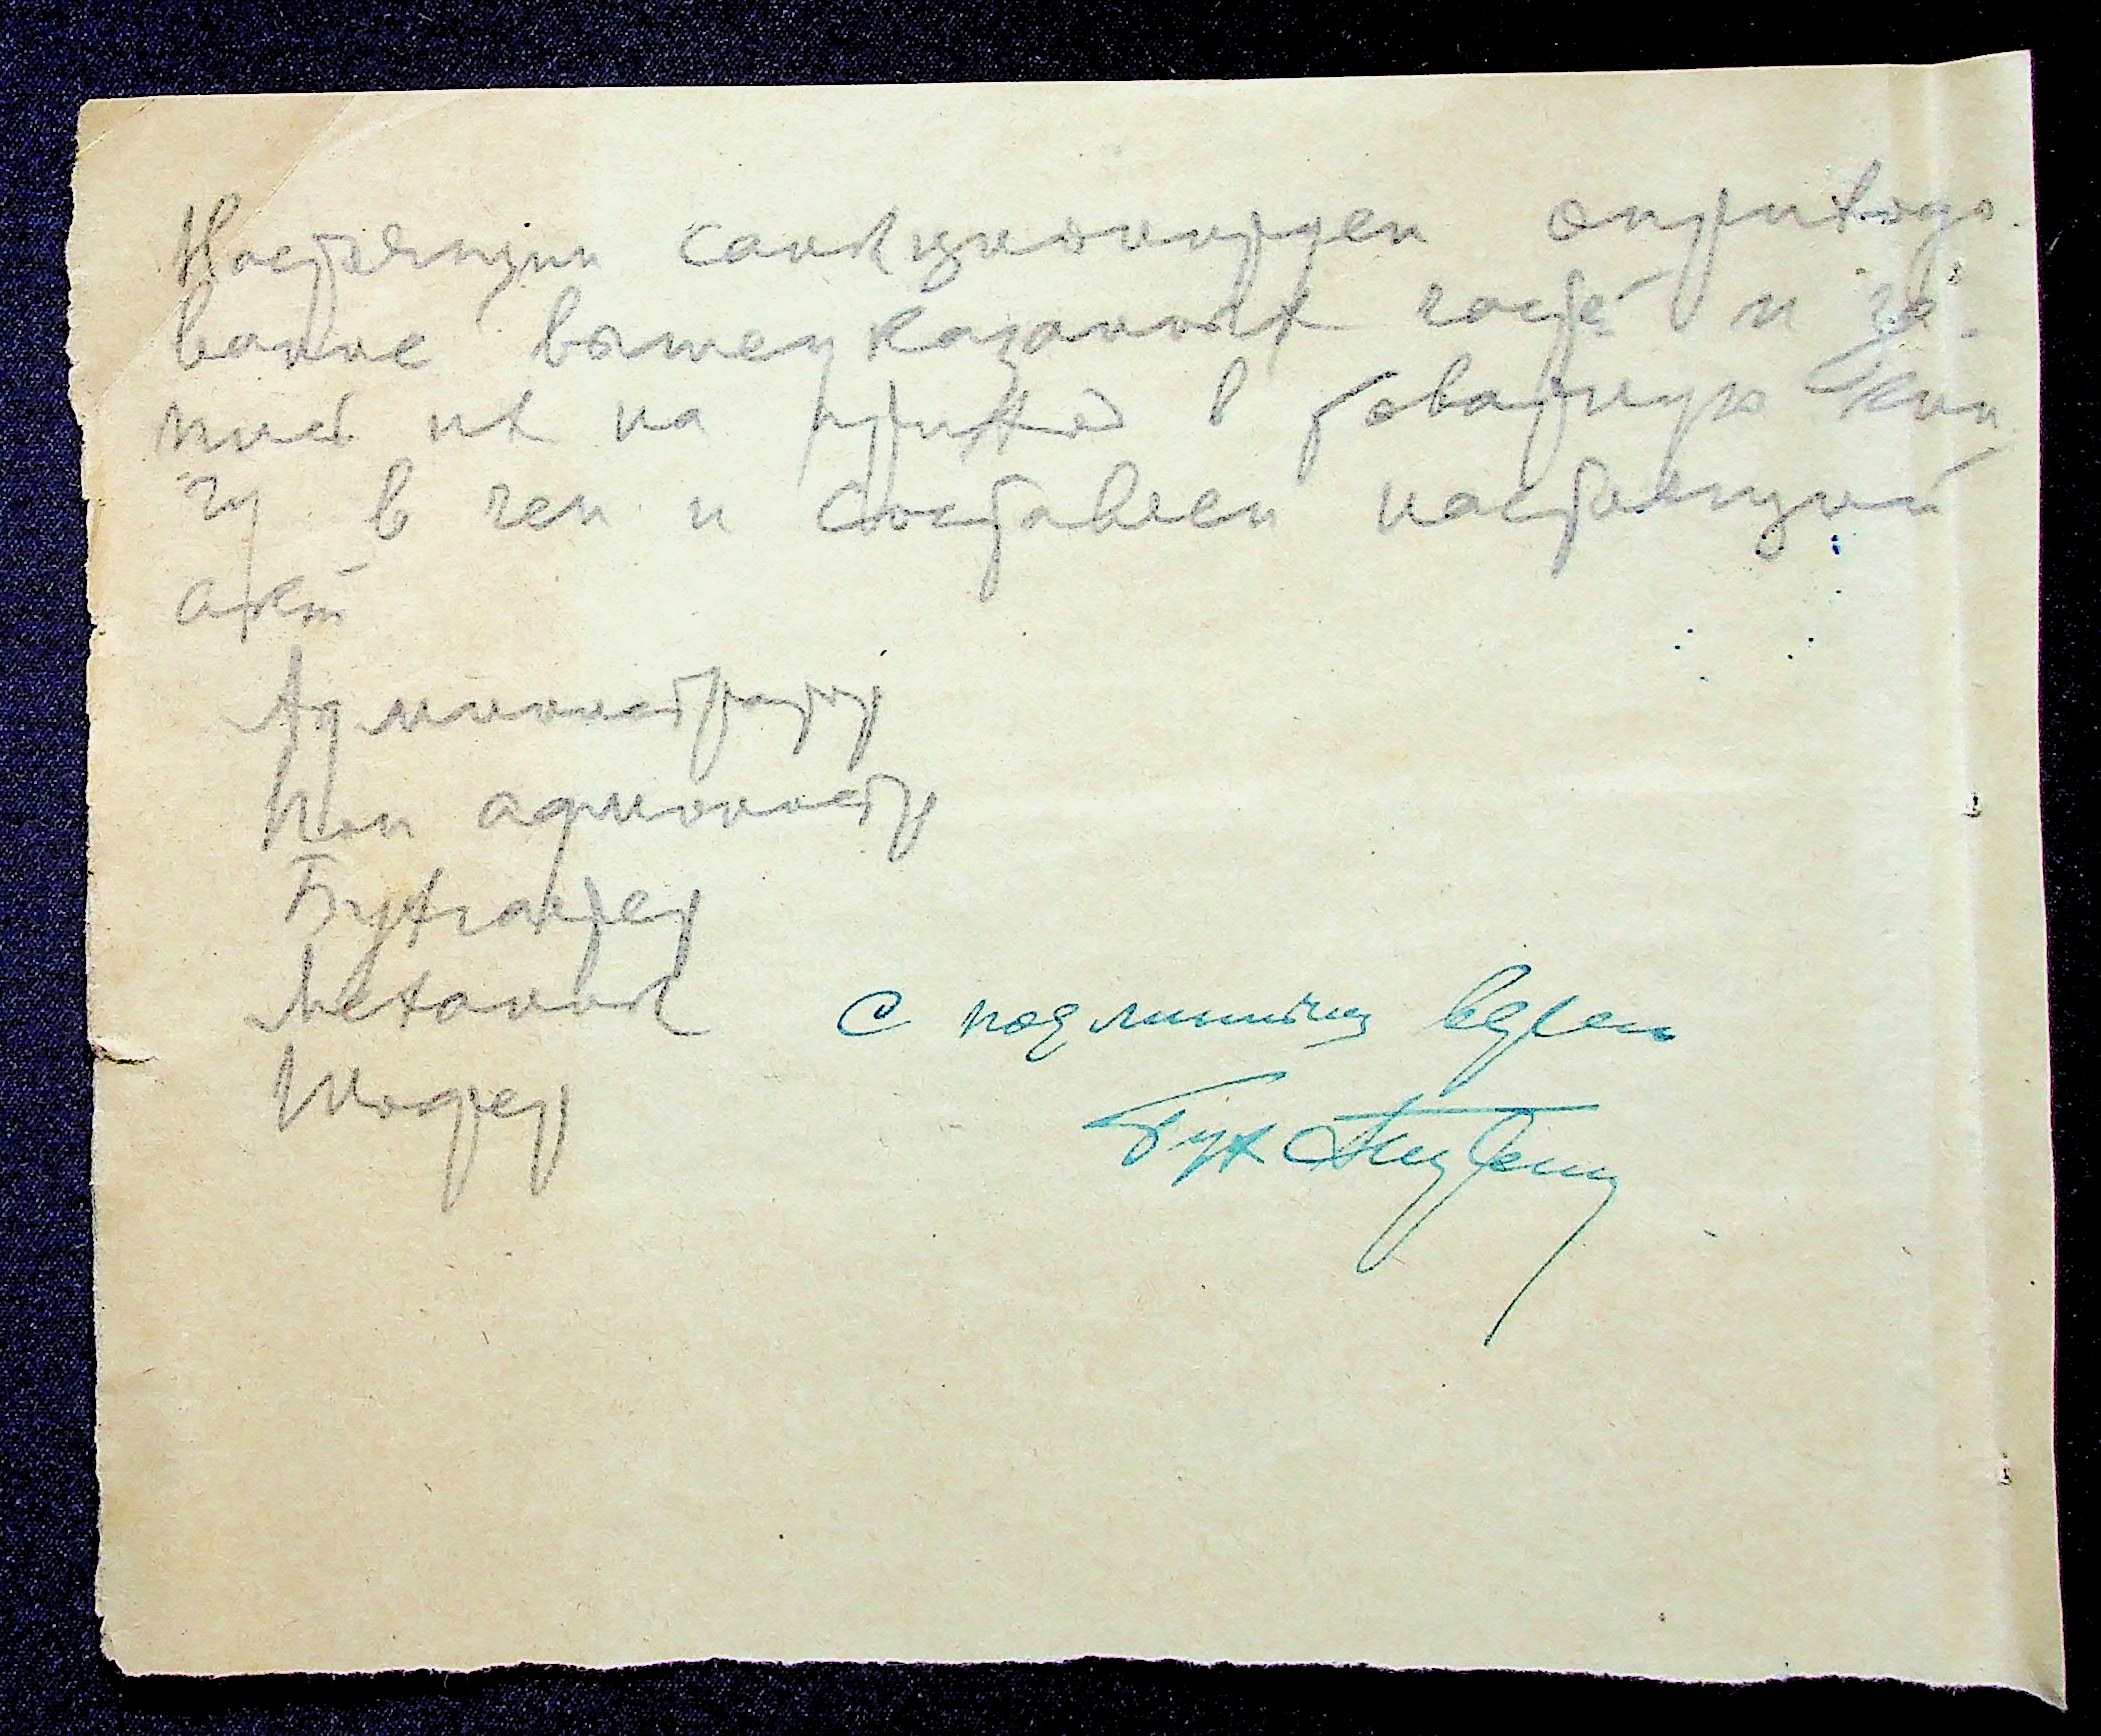 Настоящим санкционируем оприходо-
вание вышеуказанных часей и за-
пись их на приход в товарную кни
гу в чем и составлен настоящий
акт
Администратор
Пом администр
Бухгалтер
Механик
Шофер
С подлинным верен
Бух